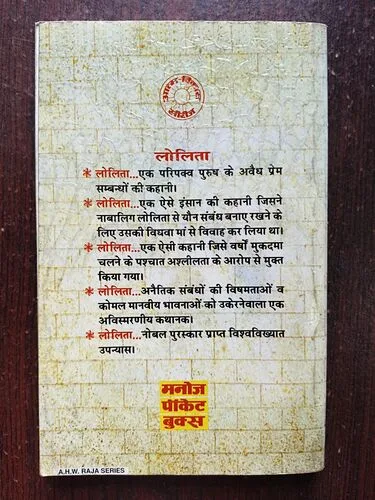 लोलिता
* लोलिता...एक परिपक्व पुरुष के अवैध प्रेम
सम्बन्धों की कहानी।
* लोलिता...एक ऐसे इंसान की कहानी जिसने
नाबालिग लोलिता से यौन संबंध बनाए रखने के
लिए उसकी विधवा मां से विवाह कर लिया था।
* लोलिता...एक ऐसी कहानी जिसे वर्षों मुकदमा
चलने के पश्चात अश्लीलता के आरोप से मुक्त
किया गया।
* लोलिता...अनैतिक संबंधों की विषमताओं व
कोमल मानवीय भावनाओं को उकेरनेवाला एक
अविस्मरणीय कथानक।
* लोलिता...नोबल पुरस्कार प्राप्त विश्वविख्यात
उपन्यास।
मनोज
पॉकेट
बुक्स
A.H.W. RAJA SERIES